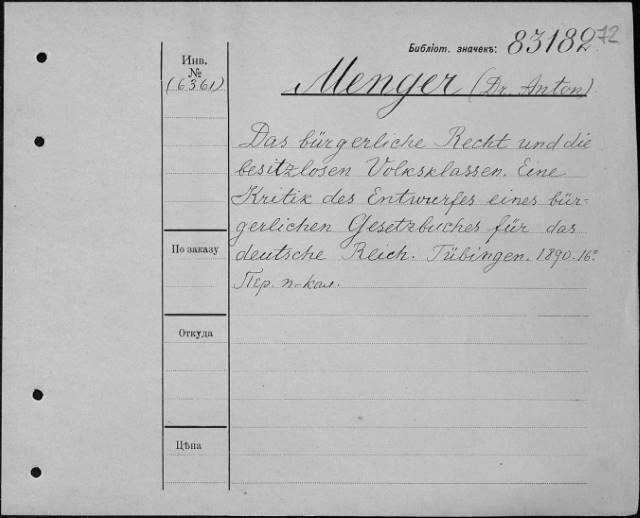 Библіот. значекъ: 83182 72
Инв.
№
(6361)
Menger (Dr. Anton)
Das bürgerliche Recht und die
besitzlosen Volksklassen. Eine
Kritik des Entwurfes eines bür-
gerlichen Gesetzbuches für das
deutsche Reich. Tübingen. 1890. 16°
Пер. п-кал.
По заказу
Откуда
Цѣна